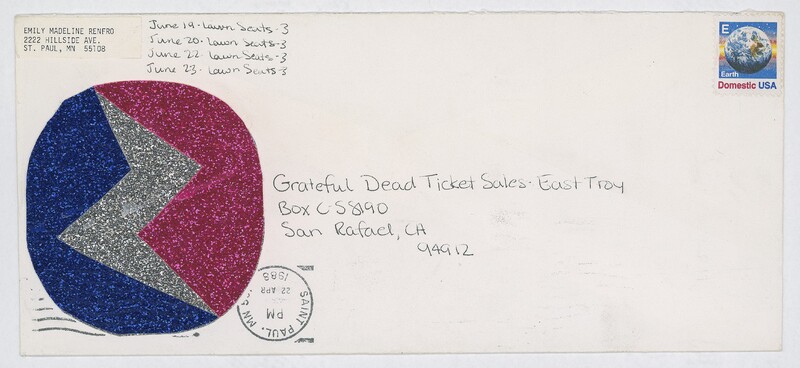 EMILY MADELINE RENFRO
2222 HILLSIDE AVE.
ST. PAUL, MN 55108
June 19 - Lawn Seats - 3
June 20 - Lawn Seats - 3
June 22 - Lawn Seats - 3
June 23 - Lawn Seats - 3
E
Earth
Domestic USA
Grateful Dead Ticket Sales - East Troy
Box C-S8190
San Rafael, CA
94912
SAINT PAUL, MN
PM
22 APR
1988